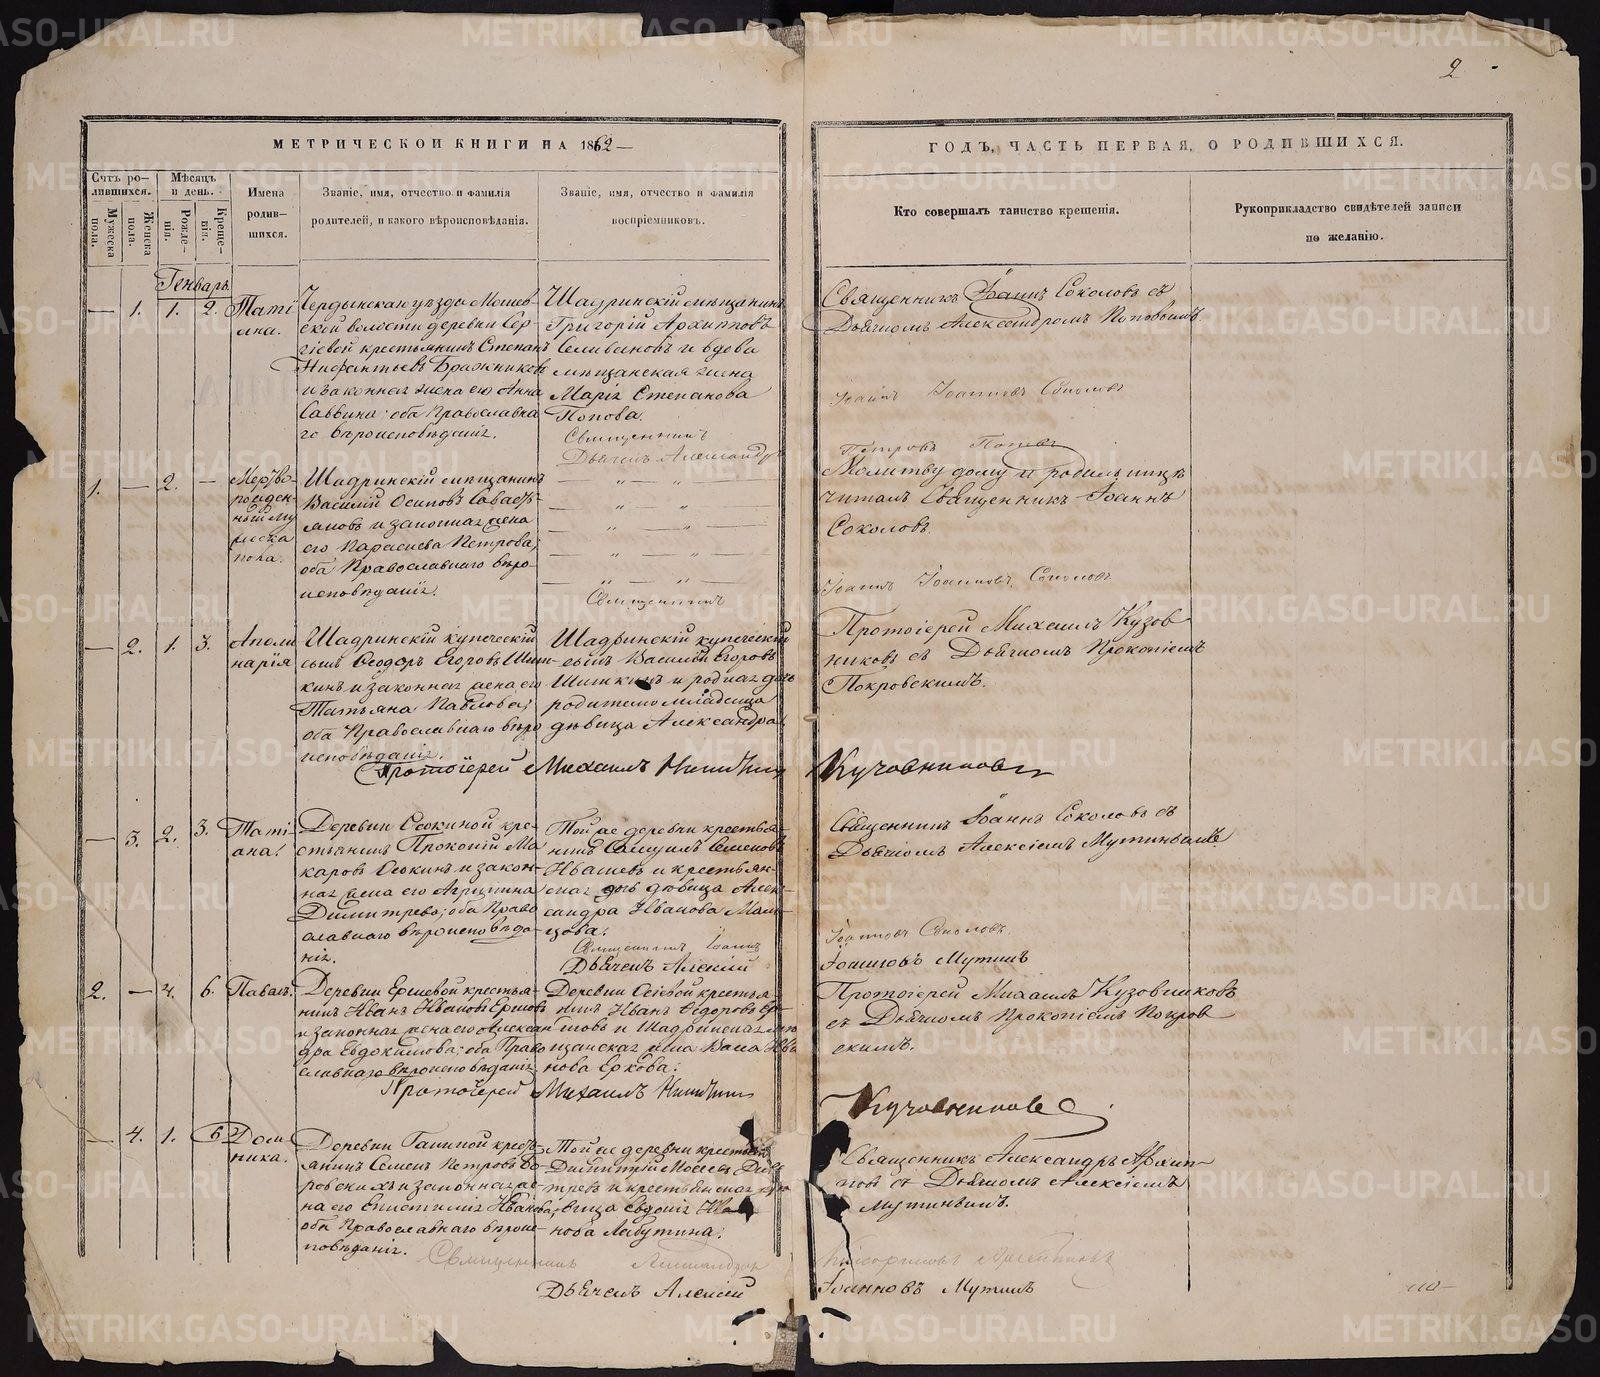 2
МЕТРИЧЕСКОЙ КНИГИ НА 1862
ГОДЪ, ЧАСТЬ ПЕРВАЯ, О РОДИВШИХСЯ.
Счтъ ро-
дившихся.
Мужеска
пола.
Женска
пола.
Мѣсяцъ
и день.
Рожде-
нія.
Креще-
нія.
Имена
родив-
шихся.
Званіе, имя, отчество и фамилія
родителей, и какого вѣроисповѣданія.
Званіе, имя, отчество и фамилія
воспріемниковъ.
Кто совершалъ таинство крещенія.
Рукоприкладство свидѣтелей записи
по желанію.
Генварь
— 1. 1. 2.
Таті
яна.
Чердынскаго уѣзда Мошев-
ской волости деревни Сер-
гіевой крестьянинъ Степанъ
Нифантьевъ Бражниковъ
и законная жена его Анна
Саввина; оба Православна
го вѣроисповѣданія.
Шадринскій мѣщанинъ
Григорій Архиповъ
Селивановъ и вдова
мѣщанская жена
Марія Степанова
Попова.
Священникъ
Дьячекъ Александръ
Священникъ Іоаннъ Соколовъ съ
Дьячкомъ Александромъ Поповымъ
Іоаннъ Іоанновъ Соколовъ
Петровъ Поповъ
1. — 2. —
Мертво-
рожден-
ный му
жеска
пола.
Шадринскій мѣщанинъ
Василій Осиповъ Савать-
яновъ и законная жена
его Параскева Петрова;
оба Православнаго вѣро-
исповѣданія.
Священникъ
Молитву дому и родильницѣ
читалъ Священникъ Іоаннъ
Соколовъ.
Іоаннъ Іоанновъ Соколовъ
— 2. 1. 3.
Аполи
нарія
Шадринскій купеческій
сынъ Феодоръ Егоровъ Шиш-
кинъ и законная жена его
Татьяна Павлова;
оба Православнаго вѣро
исповѣданія.
Шадринскій купеческій
сынъ Василій Егоровъ
Шишкинъ и родная дочь
родителю младенца
дѣвица Александра
Протоіерей Михаилъ Кузов-
никовъ съ Дьячкомъ Прокопіемъ
Покровскимъ.
Протоіерей Михаилъ Никитинъ Кузовниковъ
— 3. 2. 3.
Таті-
ана.
Деревни Осокиной кре-
стьянинъ Прокопій Ма
каровъ Осокинъ и закон-
ная жена его Агрипина
Димитрева; оба Право
славнаго вѣроисповѣда-
нія.
Той же деревни крестья-
нинъ Самуилъ Семеновъ
Ивашевъ и крестьян-
ская дочь дѣвица Алек-
сандра Иванова Маль-
цова.
Священникъ Іоаннъ
Дьячекъ Алексій
Священникъ Іоаннъ Соколовъ съ
Дьячкомъ Алексіемъ Мутинымъ
Іоанновъ Соколовъ.
Іоанновъ Мутинъ
2. — 4. 6. Павелъ.
Деревни Ершевой крестья-
нинъ Иванъ Ивановъ Ершовъ
и законная жена его Алексан
дра Евдокимова; оба Право
славнаго вѣроисповѣданія.
Деревни Осіевой крестья
нинъ Иванъ Ѳедоровъ Ер-
шовъ и Шадринская мѣ
щанская жена Васса Ива
нова Еркова.
Протоіерей Михаилъ Кузовниковъ
съ Дьячкомъ Прокопіемъ Покров
скимъ.
Протоіерей Михаилъ Никитинъ Кузовниковъ
— 4. 1. 6
Дом
ника.
Деревни Ганиной кресть-
янинъ Семенъ Петровъ Бо-
ровскихъ и законная же-
на его Епистимія Иванова;
оба Православнаго вѣроис-
повѣданія.
Той же деревни крестьян
Димитрій Моисеевъ
и крестьянская
вица Евдокія Ива
нова Лабутина.
Священникъ Александръ
Дьячекъ Алексій
Священникъ Александръ Архип-
повъ съ Дьячкомъ Алексіемъ
Мутинымъ.
Іоанновъ Мутинъ
METRIKI.GASO-URAL.RU